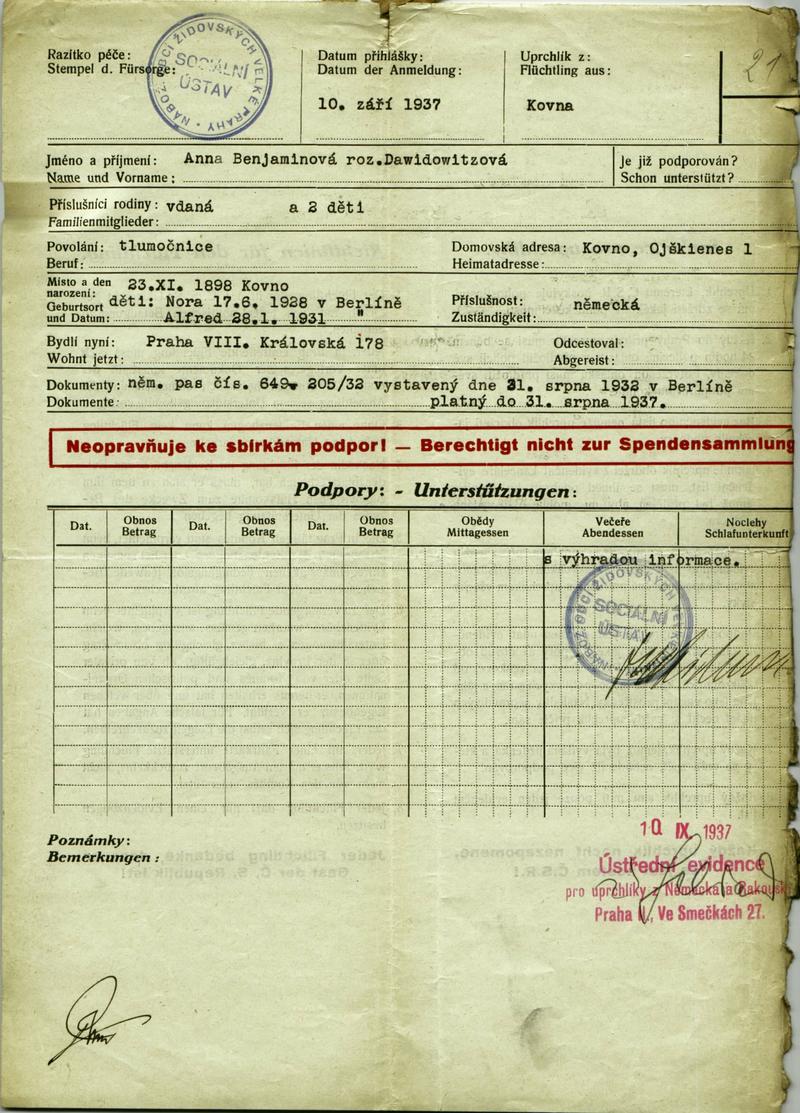 NÁBOŽ. OBCÍ ŽIDOVSKÝCH VELKÉ PRAHY
SOCIÁLNÍ
ÚSTAV
Razítko péče:
Stempel d. Fürsorge:
Datum přihlášky:
Datum der Anmeldung:
10. září 1937
Uprchlík z:
Flüchtling aus:
Kovna
21
Jméno a příjmení: Anna Benjaminová roz.Dawidowitzová
Name und Vorname:
Je již podporován?
Schon unterstützt?
Příslušníci rodiny: vdaná a 2 děti
Familienmitglieder:
Povolání: tlumočnice
Beruf:
Domovská adresa: Kovno, Ojěkienes 1
Heimatadresse:
Místo a den 23.XI. 1898 Kovno
narození:
Geburtsort děti: Nora 17.6. 1928 v Berlíně
und Datum: Alfred 28.1. 1931 "
Příslušnost: německá
Zuständigkeit:
Bydlí nyní: Praha VIII. Královská 178
Wohnt jetzt:
Odcestoval:
Abgereist:
Dokumenty: něm. pas čís. 649 205/32 vystavený dne 31. srpna 1932 v Berlíně
Dokumente: platný do 31. srpna 1937.
Neopravňuje ke sbírkám podpor! — Berechtigt nicht zur Spendensammlung
Podpory: - Unterstützungen:
Dat. Obnos Dat. Obnos Dat. Obnos Obědy Večeře Noclehy
Betrag Betrag Betrag Mittagessen Abendessen Schlafunterkunft
s výhradou informace.
NÁBOŽ. OBCÍ ŽIDOVSKÝCH VELKÉ
SOCIÁLNÍ
ÚSTAV
Poznámky:
Bemerkungen:
10 IX. 1937
Ústřední evidence
pro uprchlíky z Německa a Rakouska
Praha II., Ve Smečkách 27.